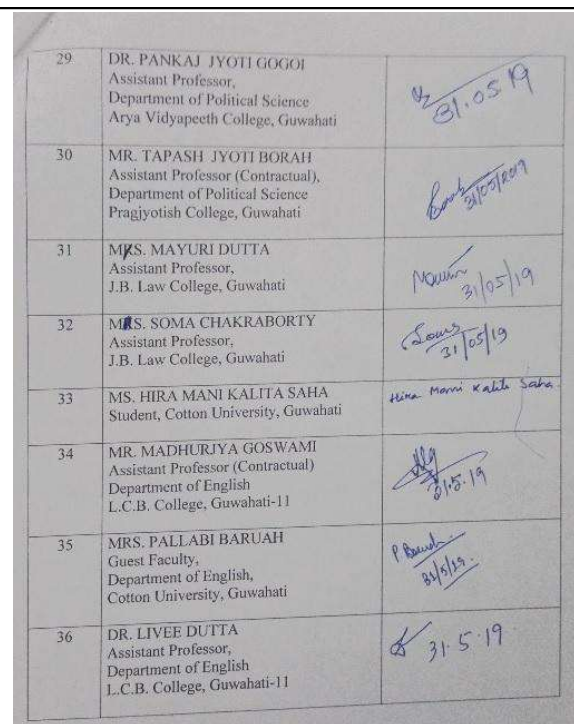 29
DR. PANKAJ JYOTI GOGOI
Assistant Professor,
Department of Political Science
Arya Vidyapeeth College, Guwahati
31.05.19
30
MR. TAPASH JYOTI BORAH
Assistant Professor (Contractual),
Department of Political Science
Pragjyotish College, Guwahati
31/05/2019
31
MS. MAYURI DUTTA
Assistant Professor,
J.B. Law College, Guwahati
31/05/19
32
MS. SOMA CHAKRABORTY
Assistant Professor,
J.B. Law College, Guwahati
31/05/19
33
MS. HIRA MANI KALITA SAHA
Student, Cotton University, Guwahati
Hira Mani Kalita Saha
34
MR. MADHURJYA GOSWAMI
Assistant Professor (Contractual)
Department of English
L.C.B. College, Guwahati-11
31.5.19
35
MRS. PALLABI BARUAH
Guest Faculty,
Department of English,
Cotton University, Guwahati
P Baruah
31/5/19.
36
DR. LIVEE DUTTA
Assistant Professor,
Department of English
L.C.B. College, Guwahati-11
31.5.19